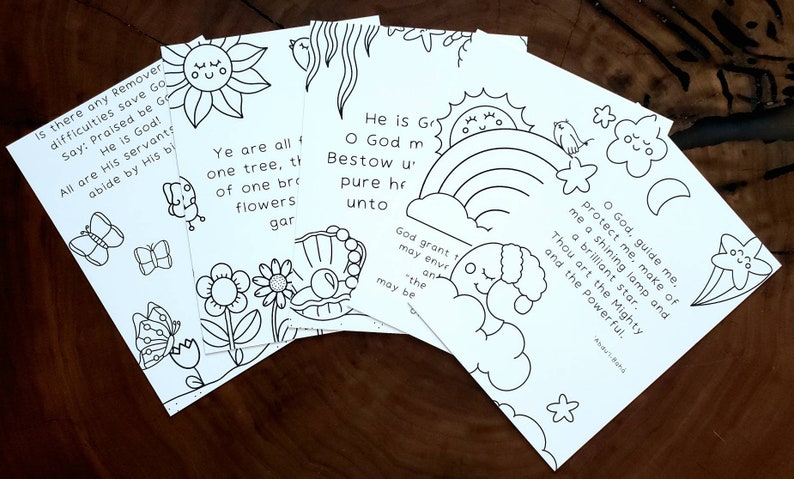 Is there any Remover
difficulties save Go
Say: Praised be Go
He is God!
All are His servants
abide by His bi
Ye are all f
one tree, th
of one br
flowers
gar
He is G
O God m
Bestow u
pure he
unto
God grant t
may env
an
"the
may be
O God, guide me,
protect me, make of
me a shining lamp and
a brilliant star.
Thou art the Mighty
and the Powerful.
'Abdu'l-Bahá